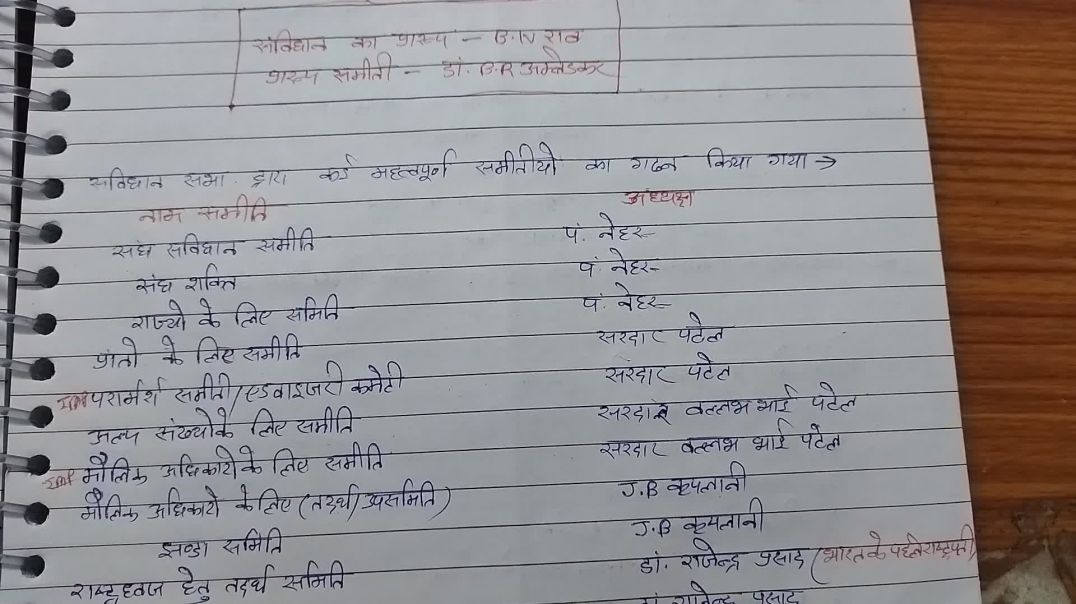 संविधान का प्रारूप - B.N राव
प्रारूप समीती - डॉ. B.R अम्बेडकर
सविधान सभा द्वारा कई महत्वपूर्ण समीतीयो का गठन किया गया →
नाम समीति अध्यक्ष
संघ सविधान समीति पं. नेहरू
संघ शक्ति पं नेहरू
राज्यो के लिए समिति पं. नेहरू
प्रांतो के लिए समीति सरदार पटेल
Imp परामर्श समीती/एडवाइजरी कमेटी सरदार पटेल
अल्प संख्योके लिए समीति सरदार वल्लभ भाई पटेल
Imp मौलिक अधिकारो के लिए समीति सरदार वल्लभ भाई पटेल
मौलिक अधिकारो के लिए (तदर्थ/उपसमिति) J.B कृपलानी
झण्डा समिति J.B कृपलानी
राष्ट्रध्वज हेतु तदर्थ समिति डॉ. राजेन्द्र प्रसाद (भारत के पहले राष्ट्रपती)
राजेन्द्र प्रसाद